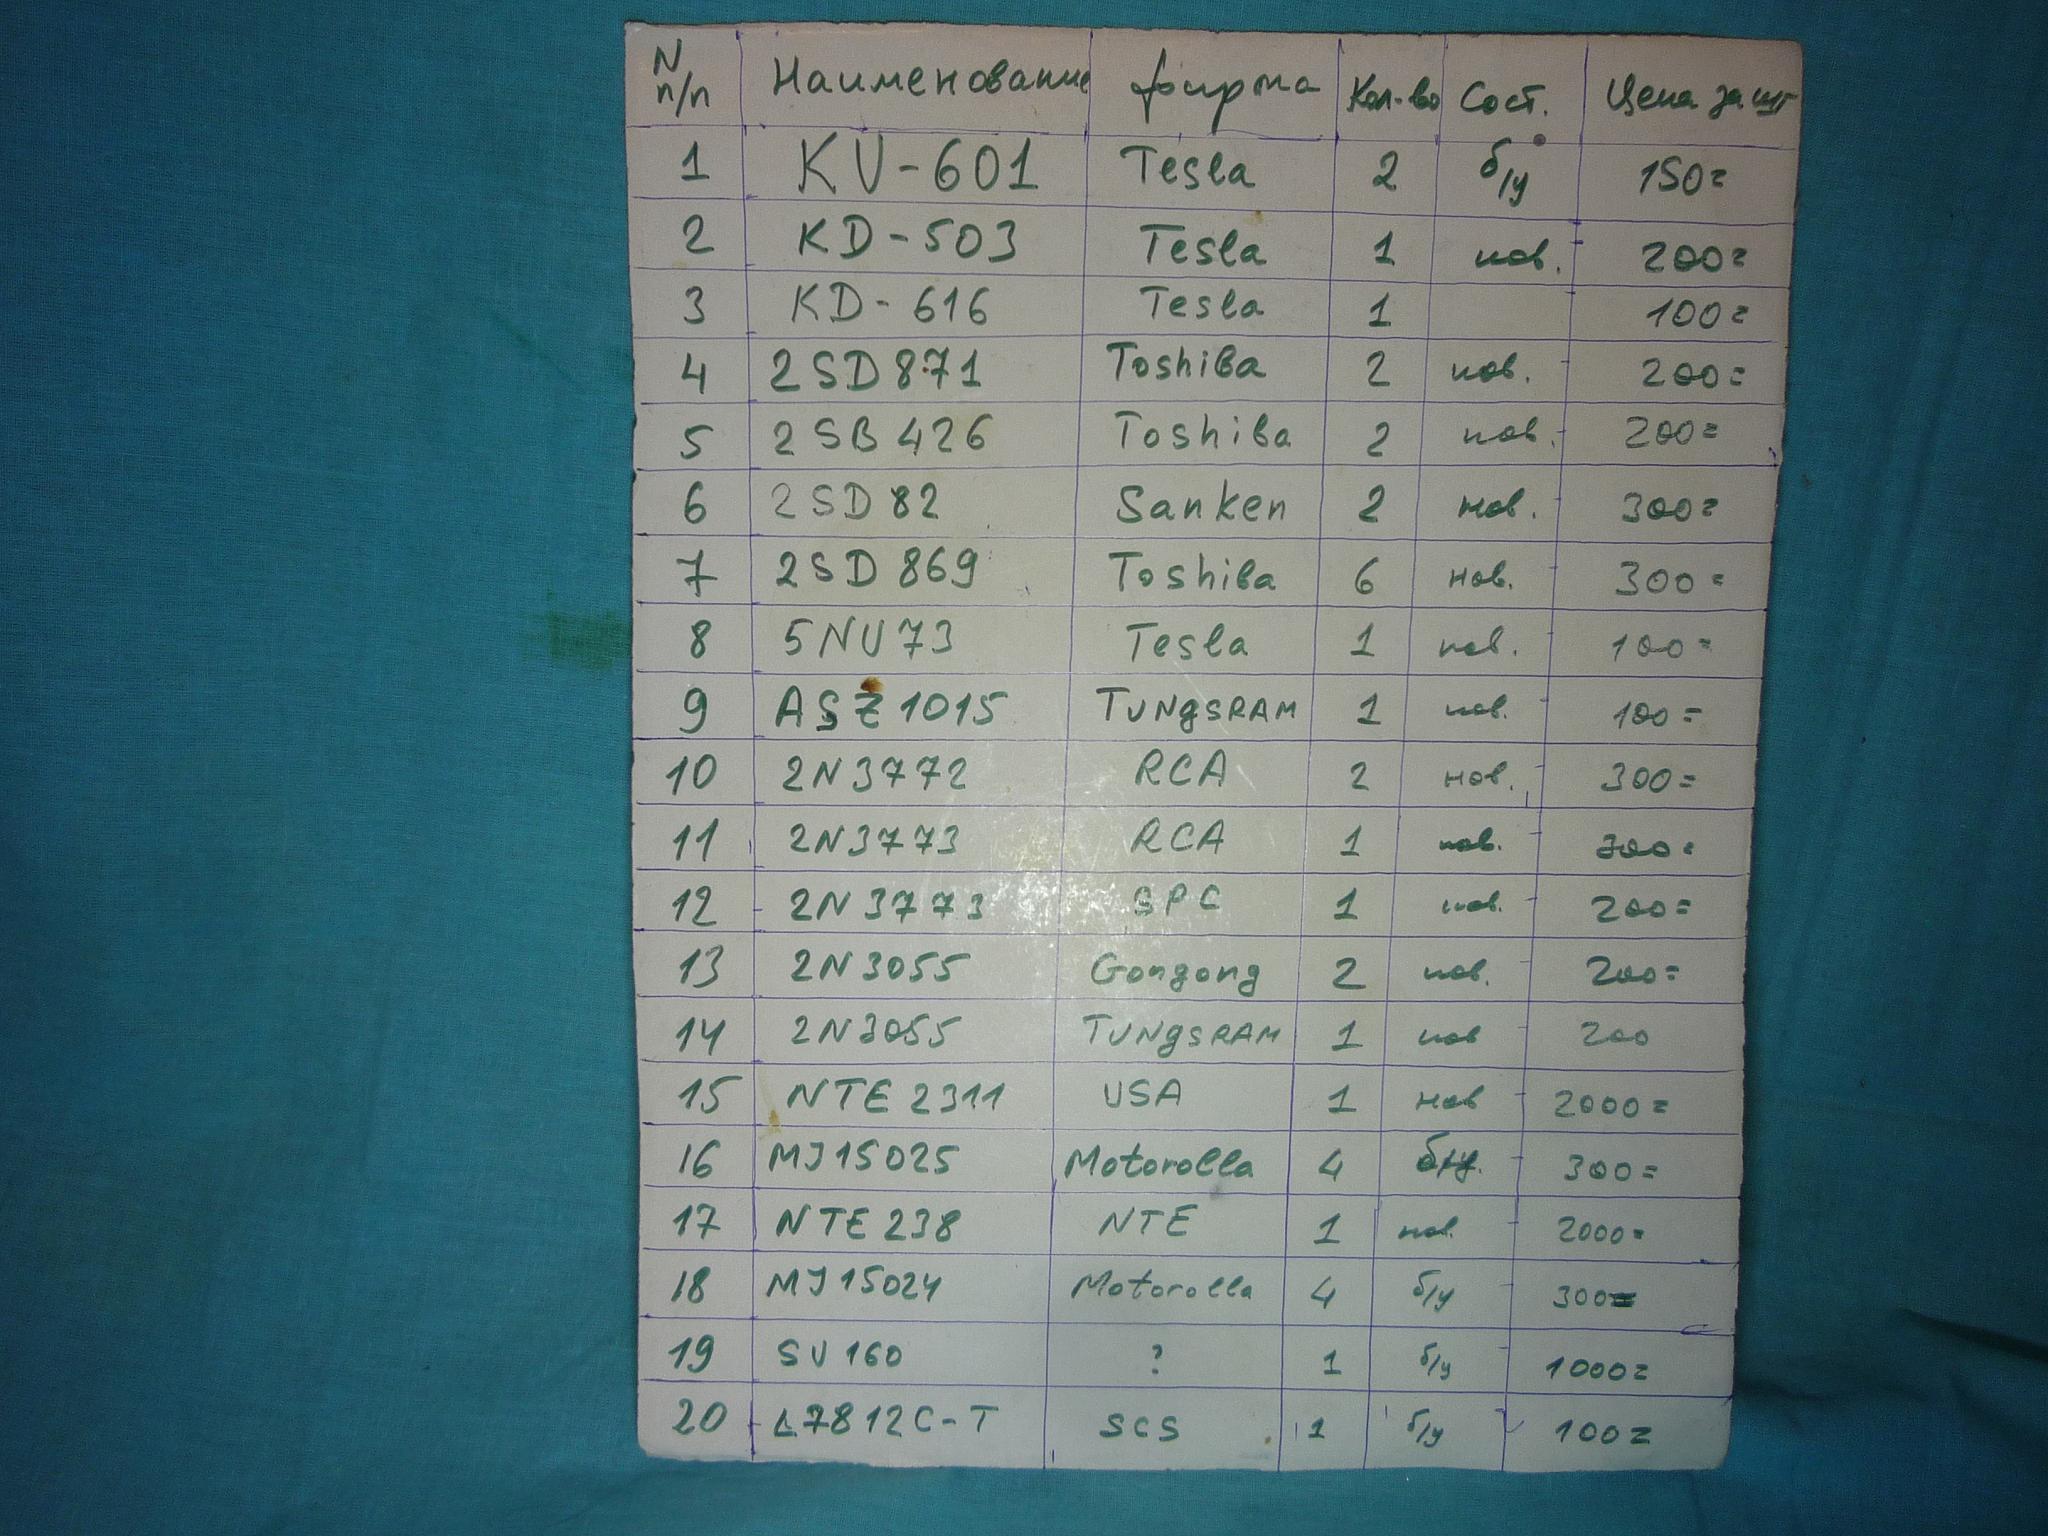 N п/п Наименование фирма Кол-во Сост. Цена за шт
1 KU-601 Tesla 2 б/у 150=
2 KD-503 Tesla 1 нов. 200=
3 KD-616 Tesla 1 100=
4 2SD871 Toshiba 2 нов. 200=
5 2SB426 Toshiba 2 нов. 200=
6 2SD82 Sanken 2 нов. 300=
7 2SD869 Toshiba 6 нов. 300=
8 5NU73 Tesla 1 нов. 100=
9 ASZ1015 TUNgSRAM 1 нов. 100=
10 2N3772 RCA 2 нов. 300=
11 2N3773 RCA 1 нов. 300=
12 2N3773 SPC 1 нов. 200=
13 2N3055 Gongong 2 нов. 200=
14 2N3055 TUNgSRAM 1 нов 200
15 NTE2311 USA 1 нов 2000=
16 MJ15025 Motorolla 4 б/у. 300=
17 NTE238 NTE 1 нов. 2000=
18 MJ15024 Motorolla 4 б/у 300=
19 SU160 ? 1 б/у 1000=
20 L7812C-T SCS 1 б/у 100=